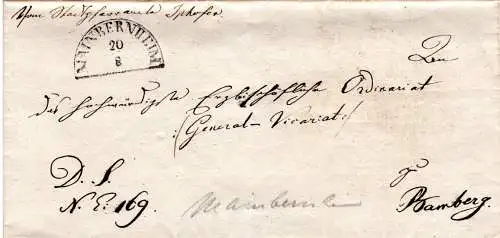 Vom Stadtpfarramte Iphofen
MAINBERNHEIM
20
8
An
das hochwürdigste Erzbischöfliche Ordinariat
/: General-Vicariat :/
D. S.
N. E. 169.
Mainbernheim
zu
Bamberg.